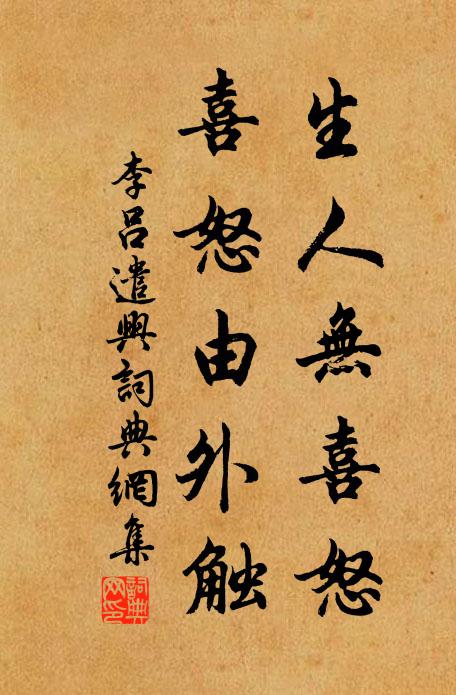 生人無喜怒
喜怒由外触
李呂遣興詞典網集
詞典網印